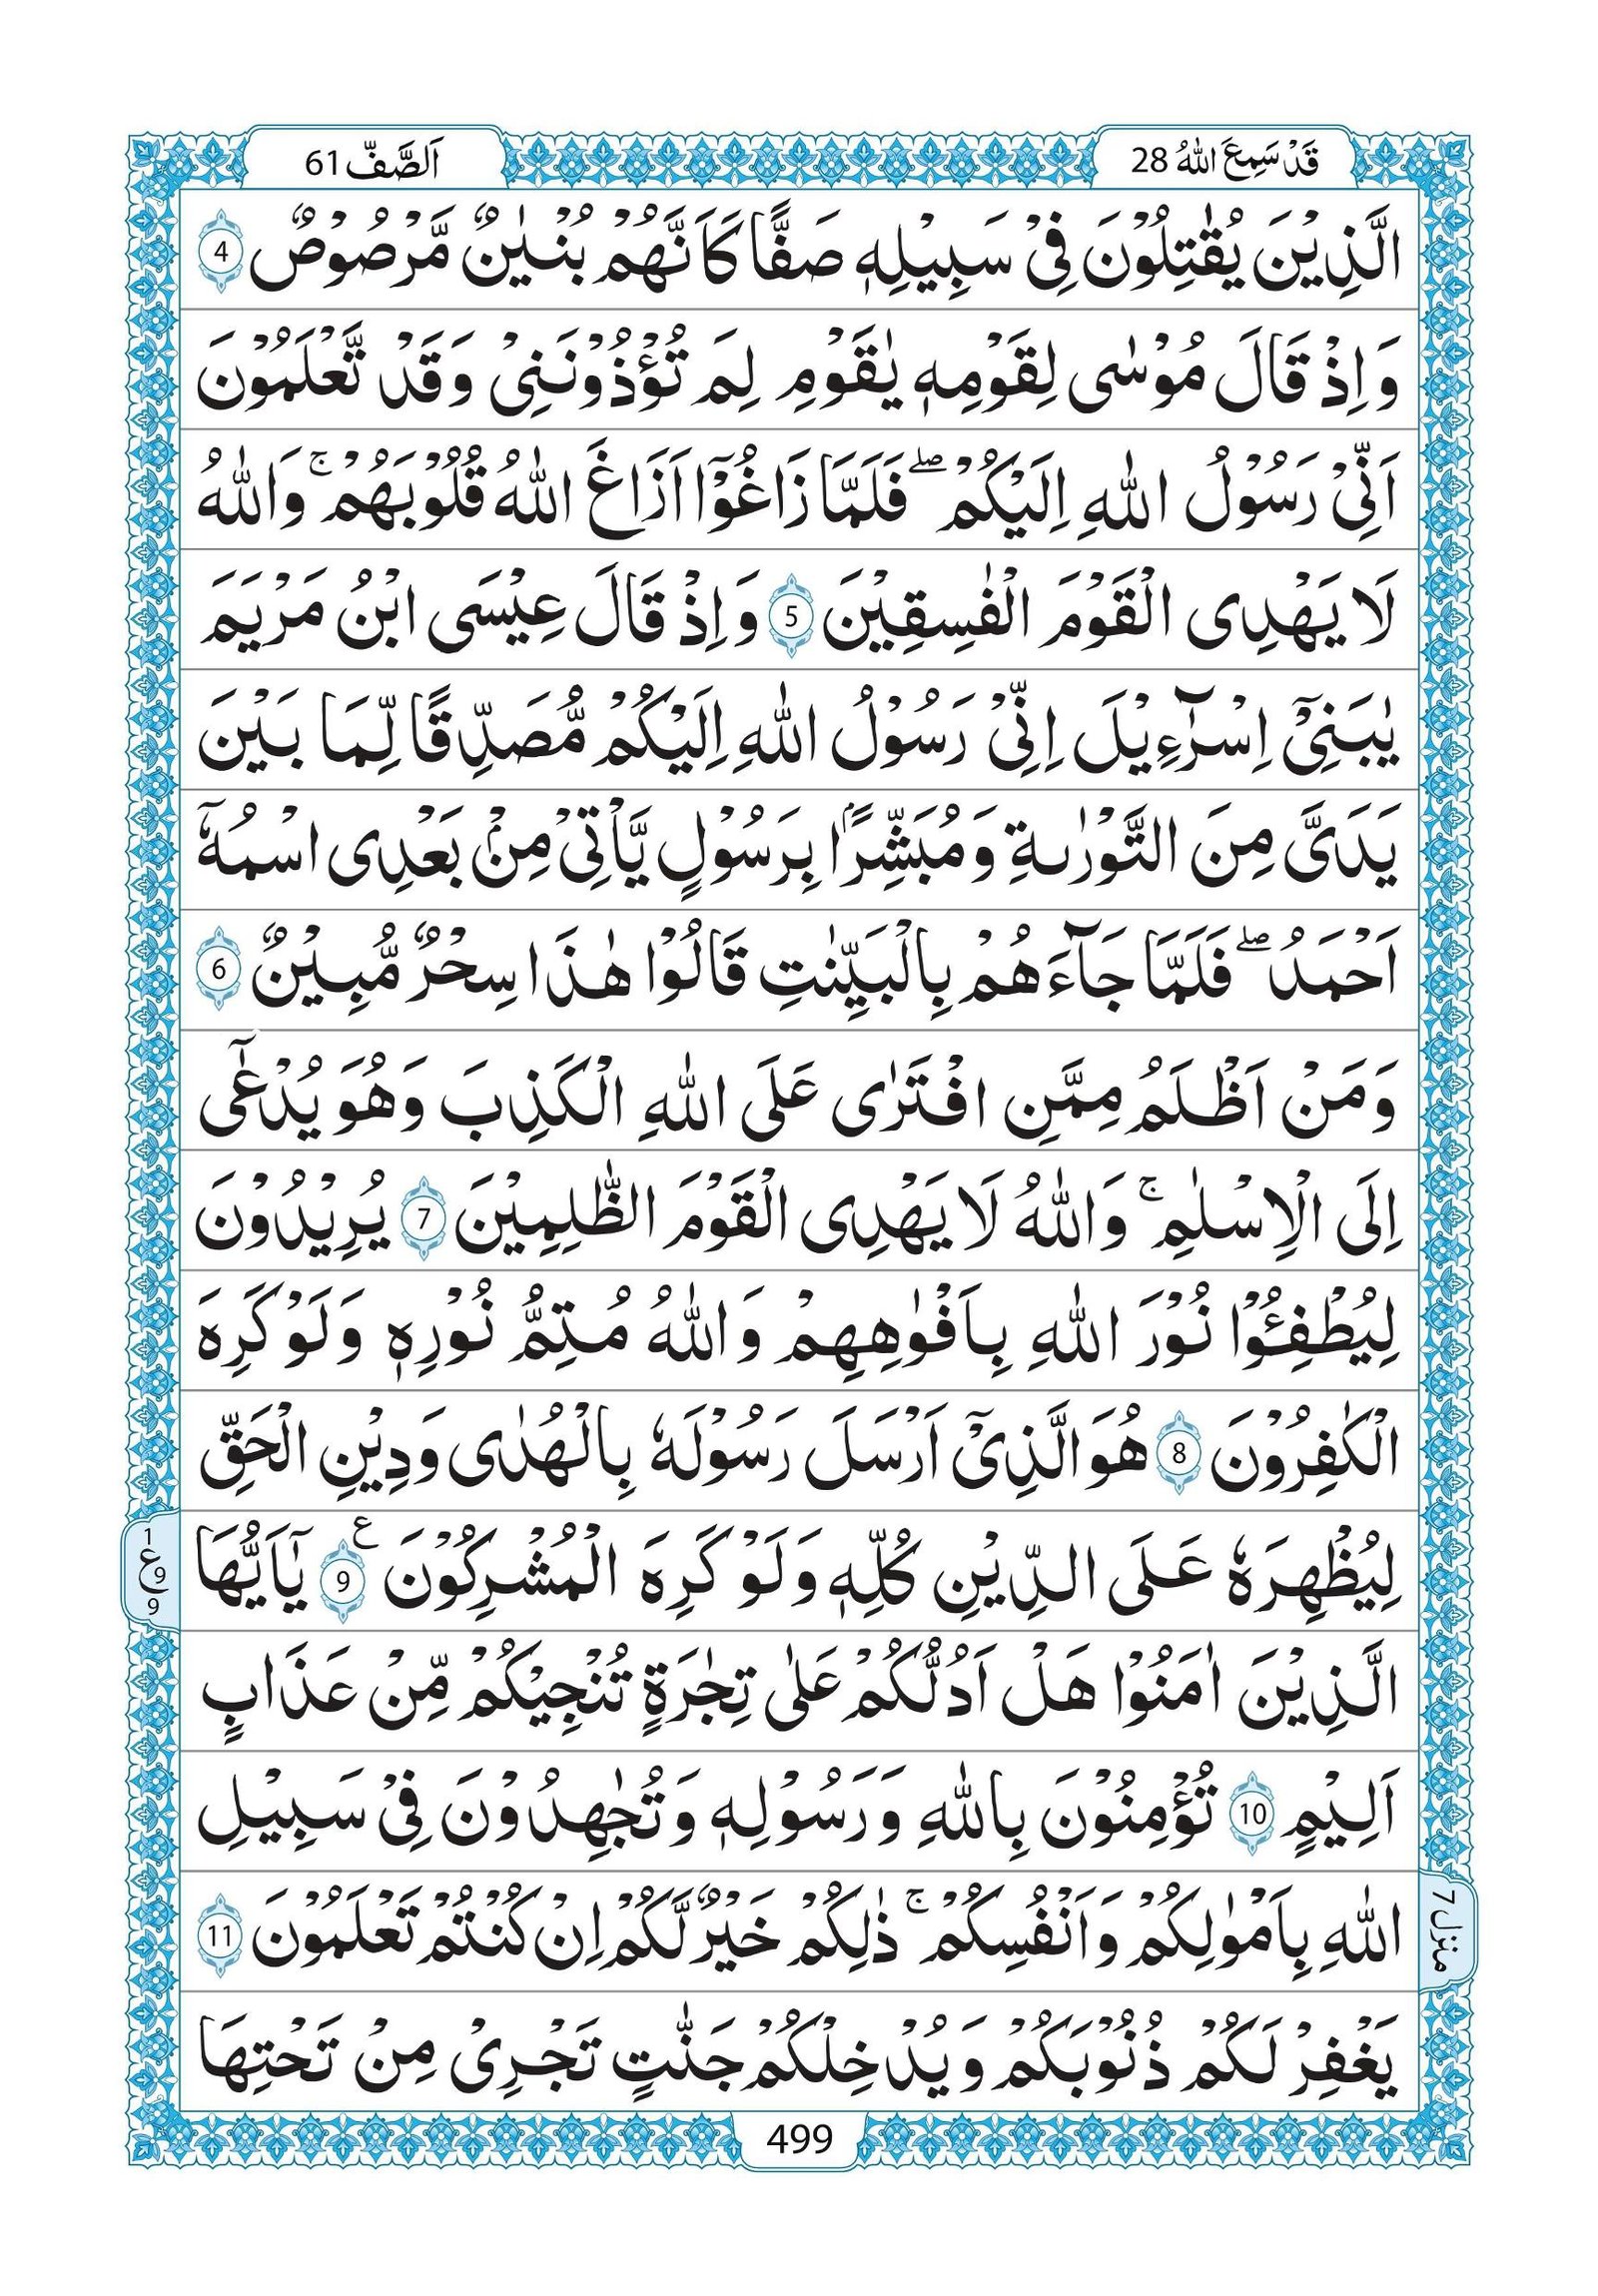 قَدۡ سَمِعَ اللّٰهُ 28
اَلصَّفّ 61
الَّذِيۡنَ يُقٰتِلُوۡنَ فِىۡ سَبِيۡلِهٖ صَفًّا كَاَنَّهُمۡ بُنۡيٰنٌ مَّرۡصُوۡصٌ 4
وَاِذۡ قَالَ مُوۡسٰى لِقَوۡمِهٖ يٰقَوۡمِ لِمَ تُؤۡذُوۡنَنِىۡ وَقَدۡ تَّعۡلَمُوۡنَ
اَنِّىۡ رَسُوۡلُ اللّٰهِ اِلَيۡكُمۡ ۖ فَلَمَّا زَاغُوۡۤا اَزَاغَ اللّٰهُ قُلُوۡبَهُمۡ ۚ وَاللّٰهُ
لَا يَهۡدِى الۡقَوۡمَ الۡفٰسِقِيۡنَ 5 وَاِذۡ قَالَ عِيۡسَى ابۡنُ مَرۡيَمَ
يٰبَنِىۡۤ اِسۡرٰٓءِيۡلَ اِنِّىۡ رَسُوۡلُ اللّٰهِ اِلَيۡكُمۡ مُّصَدِّقًا لِّمَا بَيۡنَ
يَدَىَّ مِنَ التَّوۡرٰٮةِ وَمُبَشِّرًۢا بِرَسُوۡلٍ يَّاۡتِىۡ مِنۡۢ بَعۡدِى اسۡمُهٗۤ
اَحۡمَدُ ۖ فَلَمَّا جَآءَهُمۡ بِالۡبَيِّنٰتِ قَالُوۡا هٰذَا سِحۡرٌ مُّبِيۡنٌ 6
وَمَنۡ اَظۡلَمُ مِمَّنِ افۡتَرٰى عَلَى اللّٰهِ الۡكَذِبَ وَهُوَ يُدۡعٰٓى
اِلَى الۡاِسۡلٰمِ ۚ وَاللّٰهُ لَا يَهۡدِى الۡقَوۡمَ الظّٰلِمِيۡنَ 7 يُرِيۡدُوۡنَ
لِيُطۡفِـُٔوۡا نُوۡرَ اللّٰهِ بِاَفۡوٰهِهِمۡ وَاللّٰهُ مُتِمُّ نُوۡرِهٖ وَلَوۡ كَرِهَ
الۡكٰفِرُوۡنَ 8 هُوَ الَّذِىۡۤ اَرۡسَلَ رَسُوۡلَهٗ بِالۡهُدٰى وَدِيۡنِ الۡحَقِّ
لِيُظۡهِرَهٗ عَلَى الدِّيۡنِ كُلِّهٖ وَلَوۡ كَرِهَ الۡمُشۡرِكُوۡنَ ع 9 يٰۤاَيُّهَا
1
ع 9
9
الَّذِيۡنَ اٰمَنُوۡا هَلۡ اَدُلُّكُمۡ عَلٰى تِجٰرَةٍ تُنۡجِيۡكُمۡ مِّنۡ عَذَابٍ
اَلِيۡمٍ 10 تُؤۡمِنُوۡنَ بِاللّٰهِ وَرَسُوۡلِهٖ وَتُجٰهِدُوۡنَ فِىۡ سَبِيۡلِ
اللّٰهِ بِاَمۡوٰلِكُمۡ وَاَنۡفُسِكُمۡ ۚ ذٰلِكُمۡ خَيۡرٌ لَّكُمۡ اِنۡ كُنۡتُمۡ تَعۡلَمُوۡنَ 11
منزل 7
يَغۡفِرۡ لَكُمۡ ذُنُوۡبَكُمۡ وَيُدۡخِلۡكُمۡ جَنّٰتٍ تَجۡرِىۡ مِنۡ تَحۡتِهَا
499